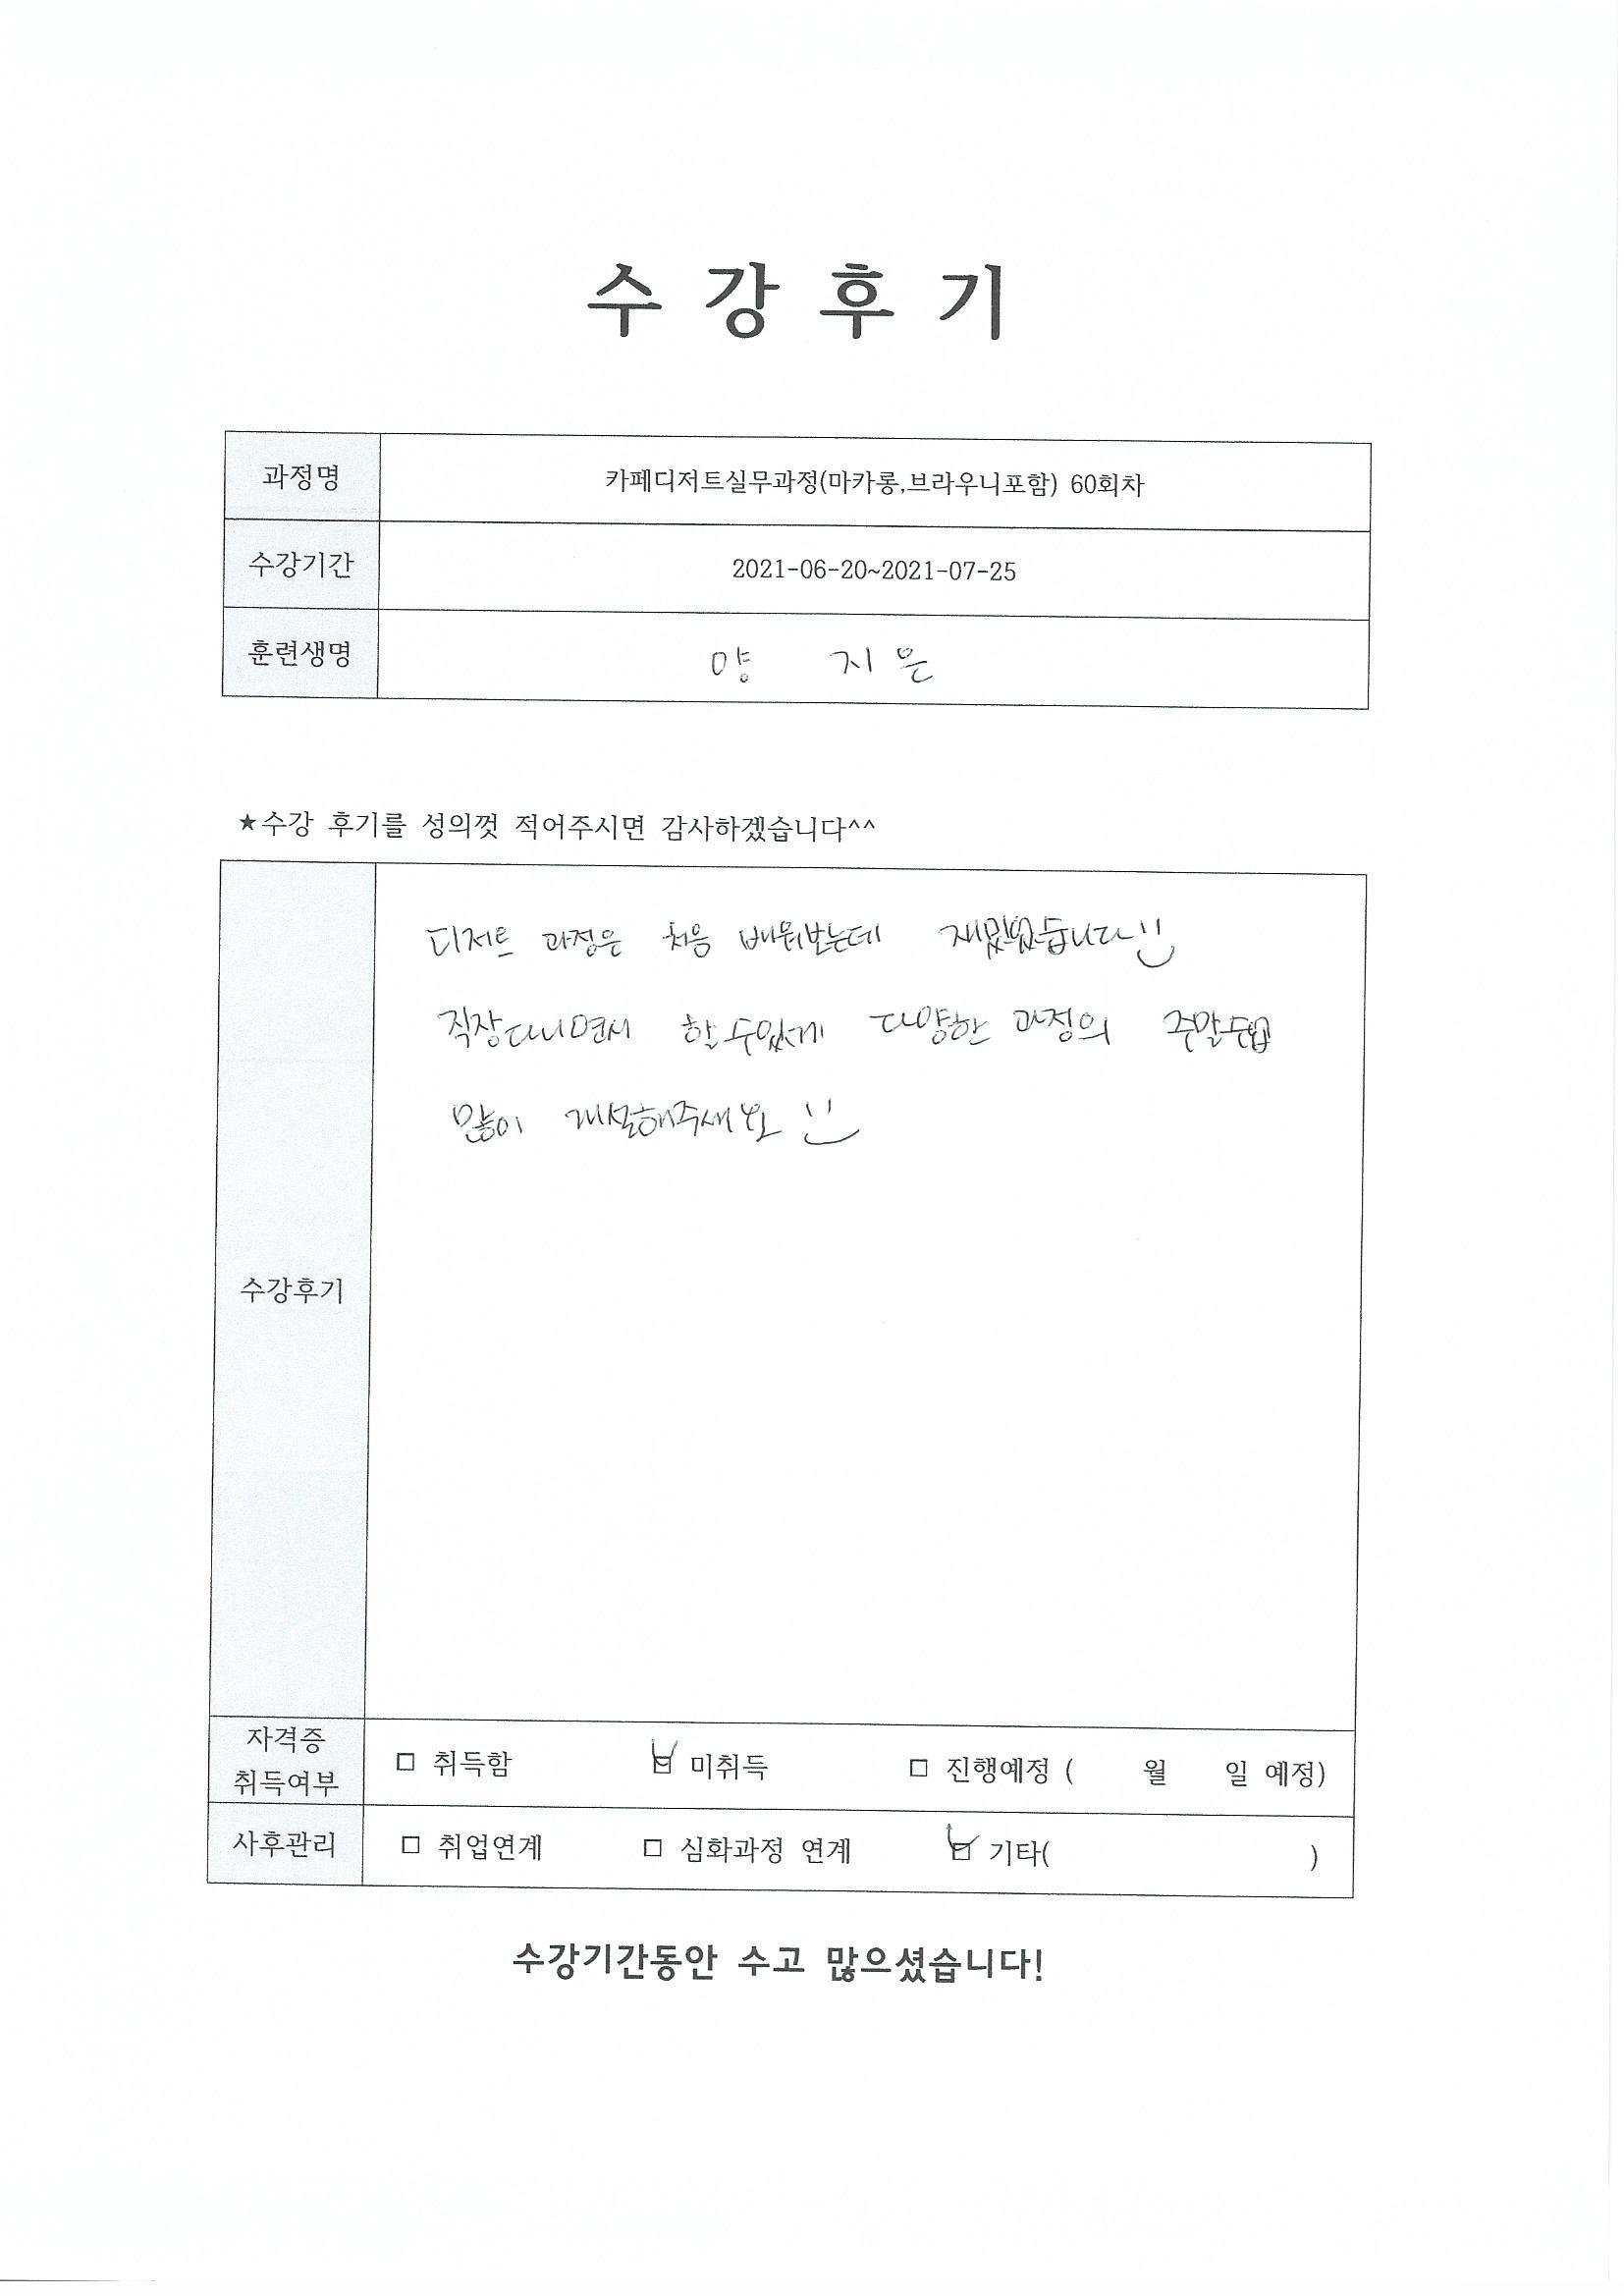 수 강 후 기
과정명 카페디저트실무과정(마카롱,브라우니포함) 60회차
수강기간 2021-06-20~2021-07-25
훈련생명 양 지은
★수강 후기를 성의껏 적어주시면 감사하겠습니다^^
디저트 과정은 처음 배워보는데 재밌었습니다
직장다니면서 할수있게 다양한 과정의 주말수업
많이 개설해주세요
수강후기
자격증
취득여부 □ 취득함 ☑ 미취득 □ 진행예정 ( 월 일 예정)
사후관리 □ 취업연계 □ 심화과정 연계 ☑ 기타( )
수강기간동안 수고 많으셨습니다!